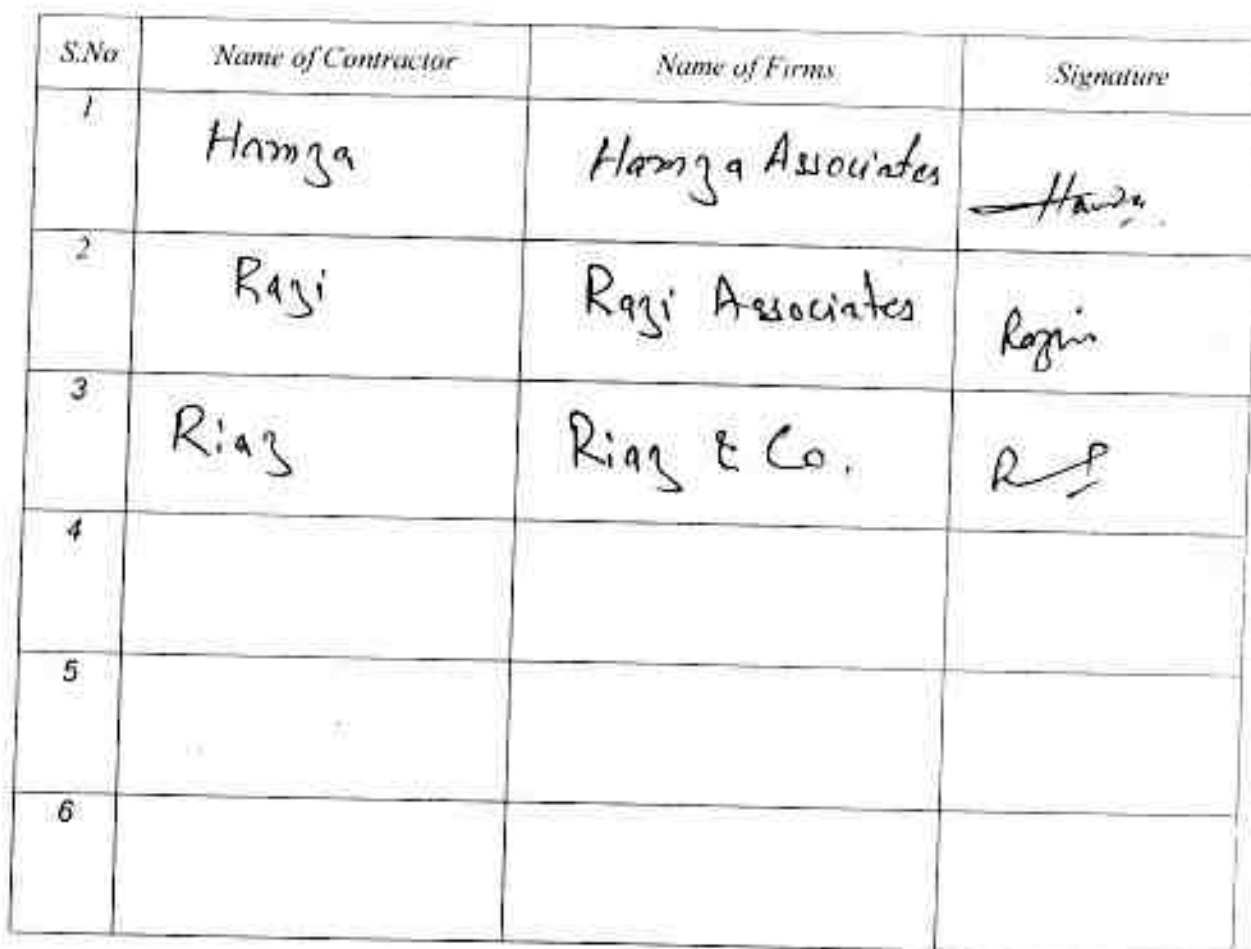 S.No Name of Contractor Name of Firms Signature
1 Hamza Hamza Associates Hamza
2 Razi Razi Associates
3 Riaz Riaz & Co.
4
5
6